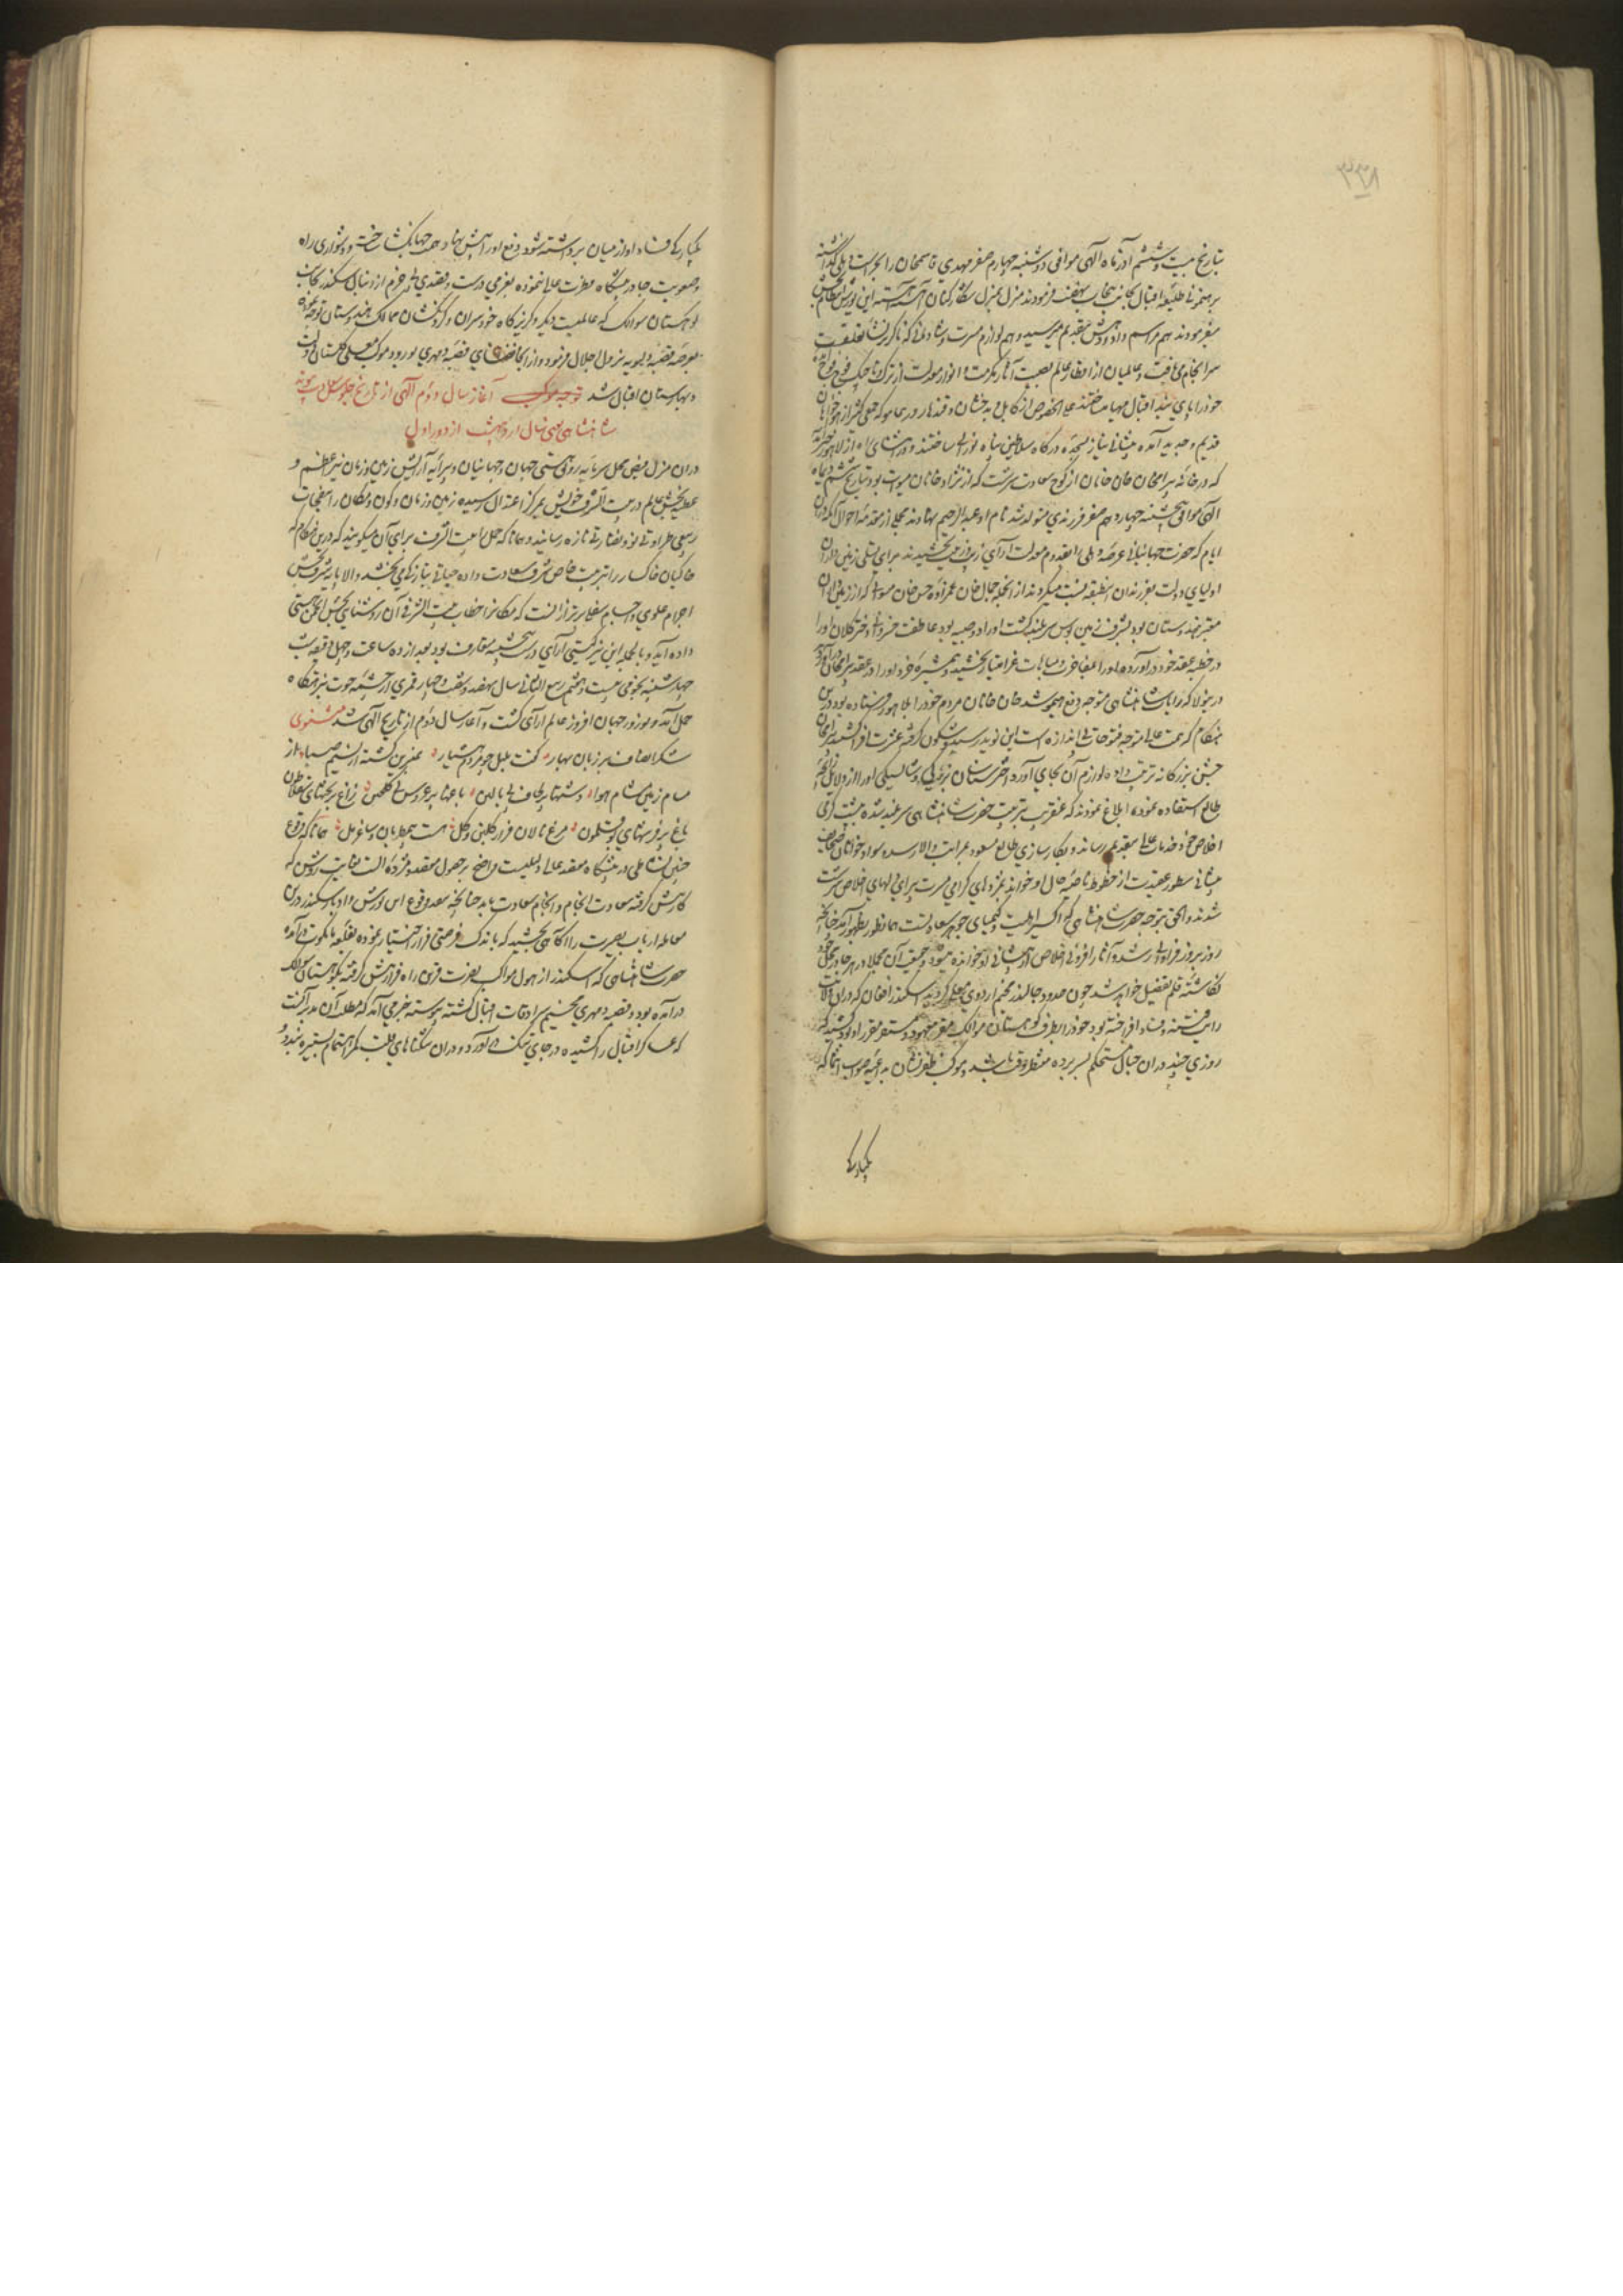 ۳۳۸
بتاریخ بیست و ششم آذرماه آلهی موافق دوشنبه چهارم صفر مهدی قاسمخان را بحراست دهلی گذاشته
برهنمونی طلیعه اقبال بجانب پنجاب نهضت فرمودند منزل بمنزل شکارکنان آهسته آهسته این یورش
میفرمودند هم مراسم داد و دهش بتقدیم میرسید و هم لوازم مسرت و شادمانی که ناگزیر نشاء تعلقست
سرانجام می یافت و عالمیان از اقطار عالم بصیت آثار مکرمت و انوار معدلت از ترک و تاجیک فوج فوج آمده
خود را بپای سریر اقبال میساختند علی الخصوص از کابل و بدخشان و قندهار در معموکه جمعی کثیر از
قدیم و جدید آمده پیشانی نیاز بسجده درگاه سلاطین پناه نورانی ساختند و در اثنای راه از لاهور خبر آمد
که در خانه بیرامخان خان خانان از کوچ سعادت سرشت که از نژاد خانان میوات بود بتاریخ ششم دیماه
آلهی موافق پنجشنبه چهاردهم صفر فرزندی متولد شد نام او عبدالرحیم نهادند مجملی از مقدمه احوال آنکه دران
ایام که حضرت جهانبانی عرصه دهلی را بقدوم معدلت آرای زیب و زینت می بخشیدند برای تسلی زمین داران
اولیای دولت بفرزندان این طبقه نسبت میکردند از انجمله جمال خان عمزاده حسن خان میواتی که از زمین داران
معتبر هندوستان بود بشرف زمین بوس سربلند گشت او را دو صبیه بود عاطفت خسروانی دختر کلان او را
در خطبه عقد خود در آورده او را بمفاخرت و مباهات فراامتیاز بخشید و همشیره خرد او را در عقد بیرامخان در آورد
درینولا که رایات شاهنشاهی متوجه دفع هیمو شد خان خانان مردم خود را بلاهور فرستاده بود درین
هنگام که همت عالی متوجه فتوحات بی اندازه است این نوید رسید و شگون گرفته عشرت افزا گشتند بیرامخان
جشن بزرگانه ترتیب داده لوازم آن بجای آورد اختر شناسان بزرگی و شایستگی او را از دلایل زایچه
طالع استفاده نموده ابلاغ نمودند که عنقریب بتربیت حضرت شاهنشاهی سربلند شده بپشت گرمی
اخلاص خود خدمات عالی بتقدیم رساند و بکارسازی طالع مسعود بمراتب والا رسد و سوادخوانان صحایف
پیشانی سطور عقیدت از خطوط ناصیه حال او خوانده مژدهای گرامی مسرت پیرای دلهای اخلاص سرشت
شدند والحق بتوجه حضرت شاهنشاهی که اکسیر اهلیت و کیمیای جوهر سعادتست همانطور بظهور آمد چنانچه
روز بروز فراوانی رشد و آثار افزونی اخلاص از پیشانی او خوانده میشود و حقیقت آن مجملا در هر جا در محل خود
نگاشته قلم تفصیل خواهد شد چون حدود جالندر مخیم اردوی معلی گردید اسکندر افغان که دران ولایت
رایت فتنه و فساد افراخته بود خود را بطرف کوهستان سوالک مقر معهود و مستقر مقرر او بود کشید که
روزی چند دران جبال مستحکم بسر برده منتظر وقت باشد و موکب ظفرنشان بداعیه صواب انتما که
یکبارگی
یکبارگی فساد او از میان برداشته شود دفع او را پیش نهاد همت جهانگشا ساخت و دشواری راه
و صعوبت جا در پیشگاه نظرت عالی نموده بعزمی درست و قصدی جازم از دنبال سکندر بجانب
کوهستان سوالک که عالمیست دیگر و گریزگاه خودسران و گردنکشان ممالک هندوستان توجه نموده
بعرصه قصبه دیسویه نزول اجلال فرمود و از انجا فضای قصبه دهمری بورود موکب معلی گلستان دولت
و بهارستان اقبال شد توجه موکب آغاز سال دوم آلهی از تاریخ جلوس سعادت پیوند
شاهنشاهی یعنی سال اردیبهشت از دور اول
دران منزل فیض محل سرمایه رونق هستی جهان و جهانیان و پیرایه آرایش زمین و زمان نیر اعظم و
عطیه بخش عالم در بیت الشرف خویش بمرکز اعتدال رسیده زمین و زمان و کون و مکان را بنفحات
ربیعی طراوتی نو و نضارتی تازه رسانید و همانا که حمل را بیت الشرف برای آن میگویند که درین هنگام که
خاکیان خاکسار را بتربیت خاص شرف سعادت داده حیاتی بتازگی می بخشد والا پایه شرف بخش
اجرام علوی و اجسام سفلی برتر از انست که مکان را خطاب بیت الشرفی آن روشنای بخش انجمن هستی
داده آید و بالجمله این نیر گیتی آرای در شب پنجشنبه متعارف بود بعد از ده ساعت و چهل دقیقه شب
چهارشنبه نجومی بیست و هشتم ربیع الثانی سال نهصد و شصت و چهار قمری از چشمه حوت بنزهتگاه
حمل آمد و نوروز جهان افروز عالم آرای گشت و آغاز سال دوم از تاریخ آلهی شد مثنوی
شکر انصاف بر زبان بهار گفت بلبل چو مردم هشیار عنبرین گشته از نسیم صبا از
مسام زمین مشام هوا
باغ پر فرشهای بوقلمون مرغ نالان فراز گلبن و گل مست مطربان و ساغر مل همانا که وقوع
چنین نشاطی در پیشگاه مقصد عالی دلیلیست واضح بر حصول مقصد و مژده الست بغایت روشن که
کارش گرفته سعادت انجام و انجام سعادت یابد چنانچه بعد وقوع این یورش و ادبار سکندر درین
معامله ارباب بصیرت را آگاهی بخشید که باندک فرصتی فرار اختیار نموده بقلعه مانکوت در آمد
حضرت شاهنشاهی که اسکندر از هول مواکب نصرت قرین راه فرار پیش گرفته بکوهستان سوالک
در آمده بود و قصبه دهمری مخیم سرادقات اقبال گشته پیوسته خبر می آمد که مطلب آن مدبر آنست
که عساکر اقبال را کشیده در جای تنگ آورد و دران تنگناهای قلب کمر اهتمام بستیزه بندد و